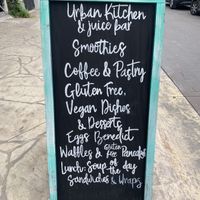 Urban Kitchen
& juice bar
Smoothies
Coffee & Pastry
Gluten Free,
Vegan Dishes
& Desserts
Eggs Benedict
Waffles & Gluten free Pancakes
Lunch: Soup of the day
Sandwiches & Wraps